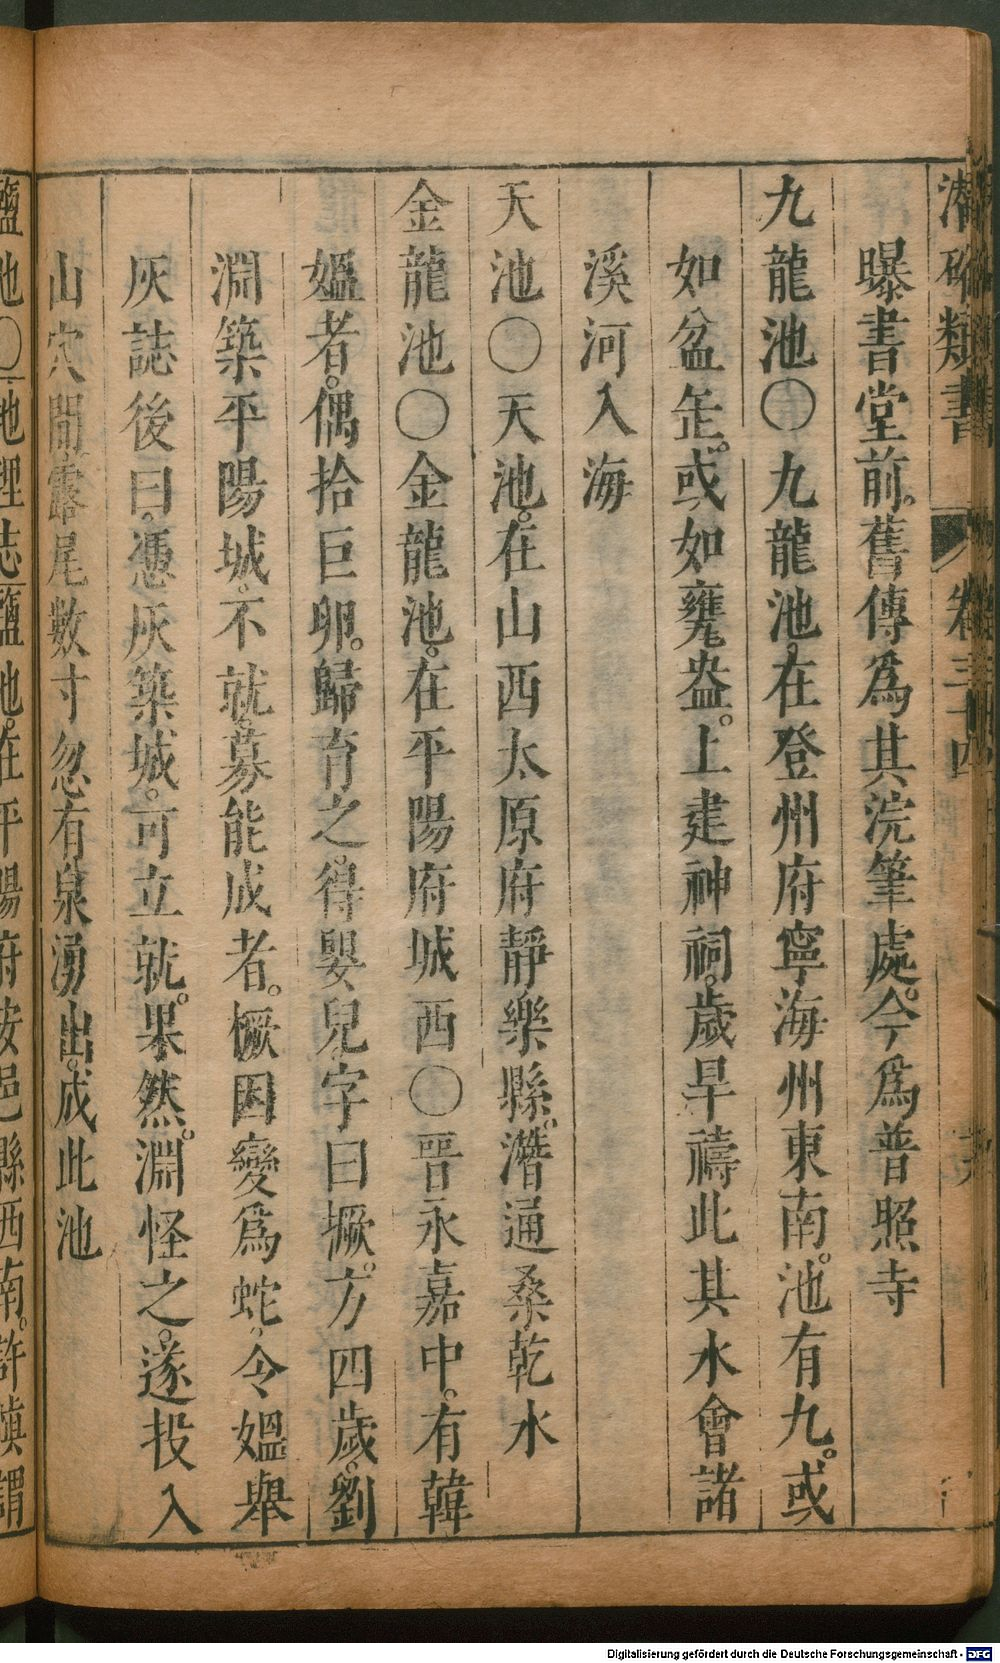 潛确類書 卷三十四
曝書堂前。舊傳為其浣筆處。今為普照寺
九龍池〇九龍池。在登州府寧海州東南。池有九。或
如盆缶。或如甕盎。上建神祠。歲旱禱此其水會諸
溪河入海
天池〇天池。在山西太原府靜樂縣。潛通桑乾水
金龍池〇金龍池。在平陽府城西〇晉永嘉中。有韓
媼者。偶拾巨卵。歸育之。得嬰兒。字曰撅。方四歲。劉
淵築平陽城。不就。募能成者。橛因變為蛇。令媼舉
灰誌後曰。憑灰築城。可立就。果然。淵怪之。遂投入
山穴間。露尾數寸。忽有泉湧出。成此池
鹽池〇地理志鹽池。在平陽府安邑縣西南。許慎謂
Digitalisierung gefördert durch die Deutsche Forschungsgemeinschaft - DFG